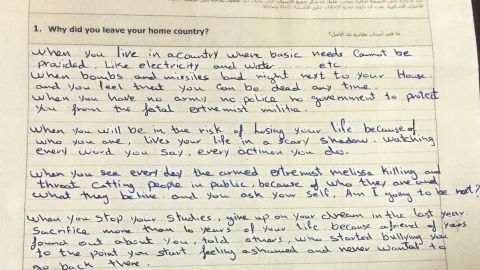 1. Why did you leave your home country?
ما هي أسباب مغادرة بلد الأصل؟
when you live in a country where basic needs Cannot be
provided. Like electricity and water ...... etc.
When bombs and missiles land right next to your House
and you feel that you can be dead any time.
when you have no army no police no government to protect
you from the fatal extremist militia.
when you will be in the risk of losing your life because of
who you are, lives your life in a scary shadow. watching
every word you say, every action you do.
when you see every day the armed extremist melissa killing and
throat catting people in public, because of who they are and
what they belive. and you ask your self. Am I going to be next?
when you stop your studies, give up on your dream in the last year.
Sacrifice more than 10 years of your life. because a friend of yours
found out about you, told others, who started bullying you
to the point you start feeling ashamed and never wanted to
go back there.